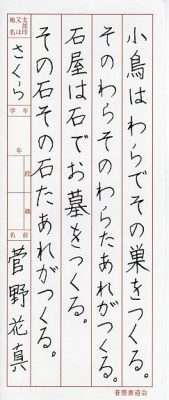 小鳥はわらでその巣をつくる。
そのわらそのわらたあれがつくる。
石屋は石でお墓をつくる。
その石その石たあれがつくる。
支部印又は地名
さくら
学年
年
段級
名前
菅野花真
書道会